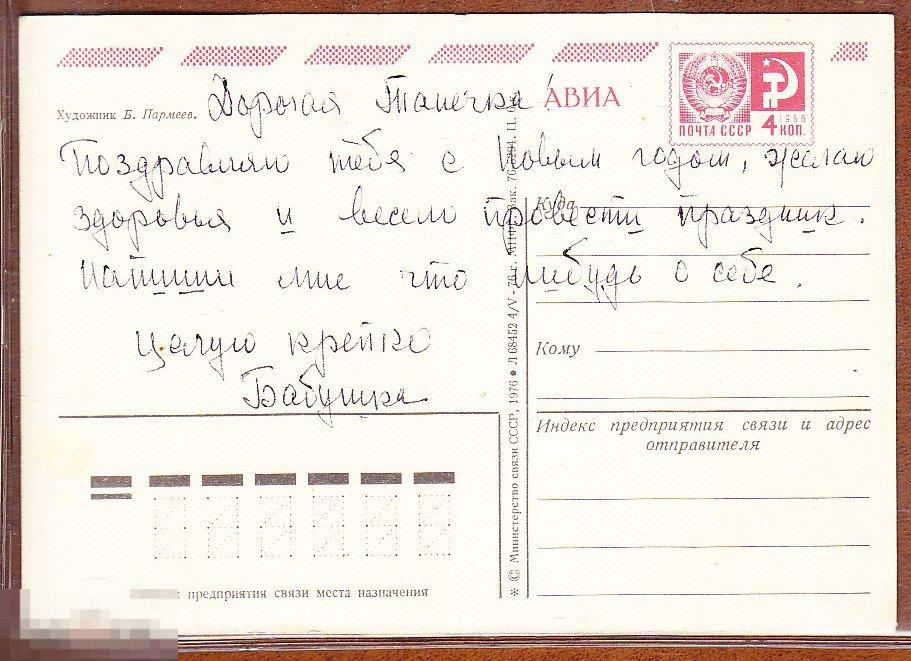 Художник Б. Пармеев.
Дорогая Танечка!
АВИА
ПОЧТА СССР 4 КОП.
1966
Поздравляю тебя с Новым годом, желаю
здоровья и весело провести праздник.
Напиши мне что нибудь о себе.
Целую крепко
Бабушка
Куда
Кому
Индекс предприятия связи и адрес
отправителя
предприятия связи места назначения
* © Министерство связи СССР, 1976 • Л 68452 4/V - 76 г.